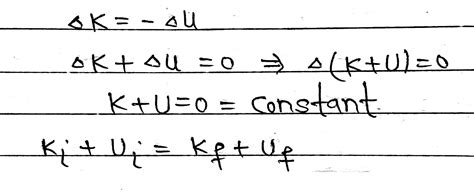 ΔK = - ΔU
ΔK + ΔU = 0 ⇒ Δ(K+U)=0
K+U=0 = constant.
Ki + Ui = Kf + Uf